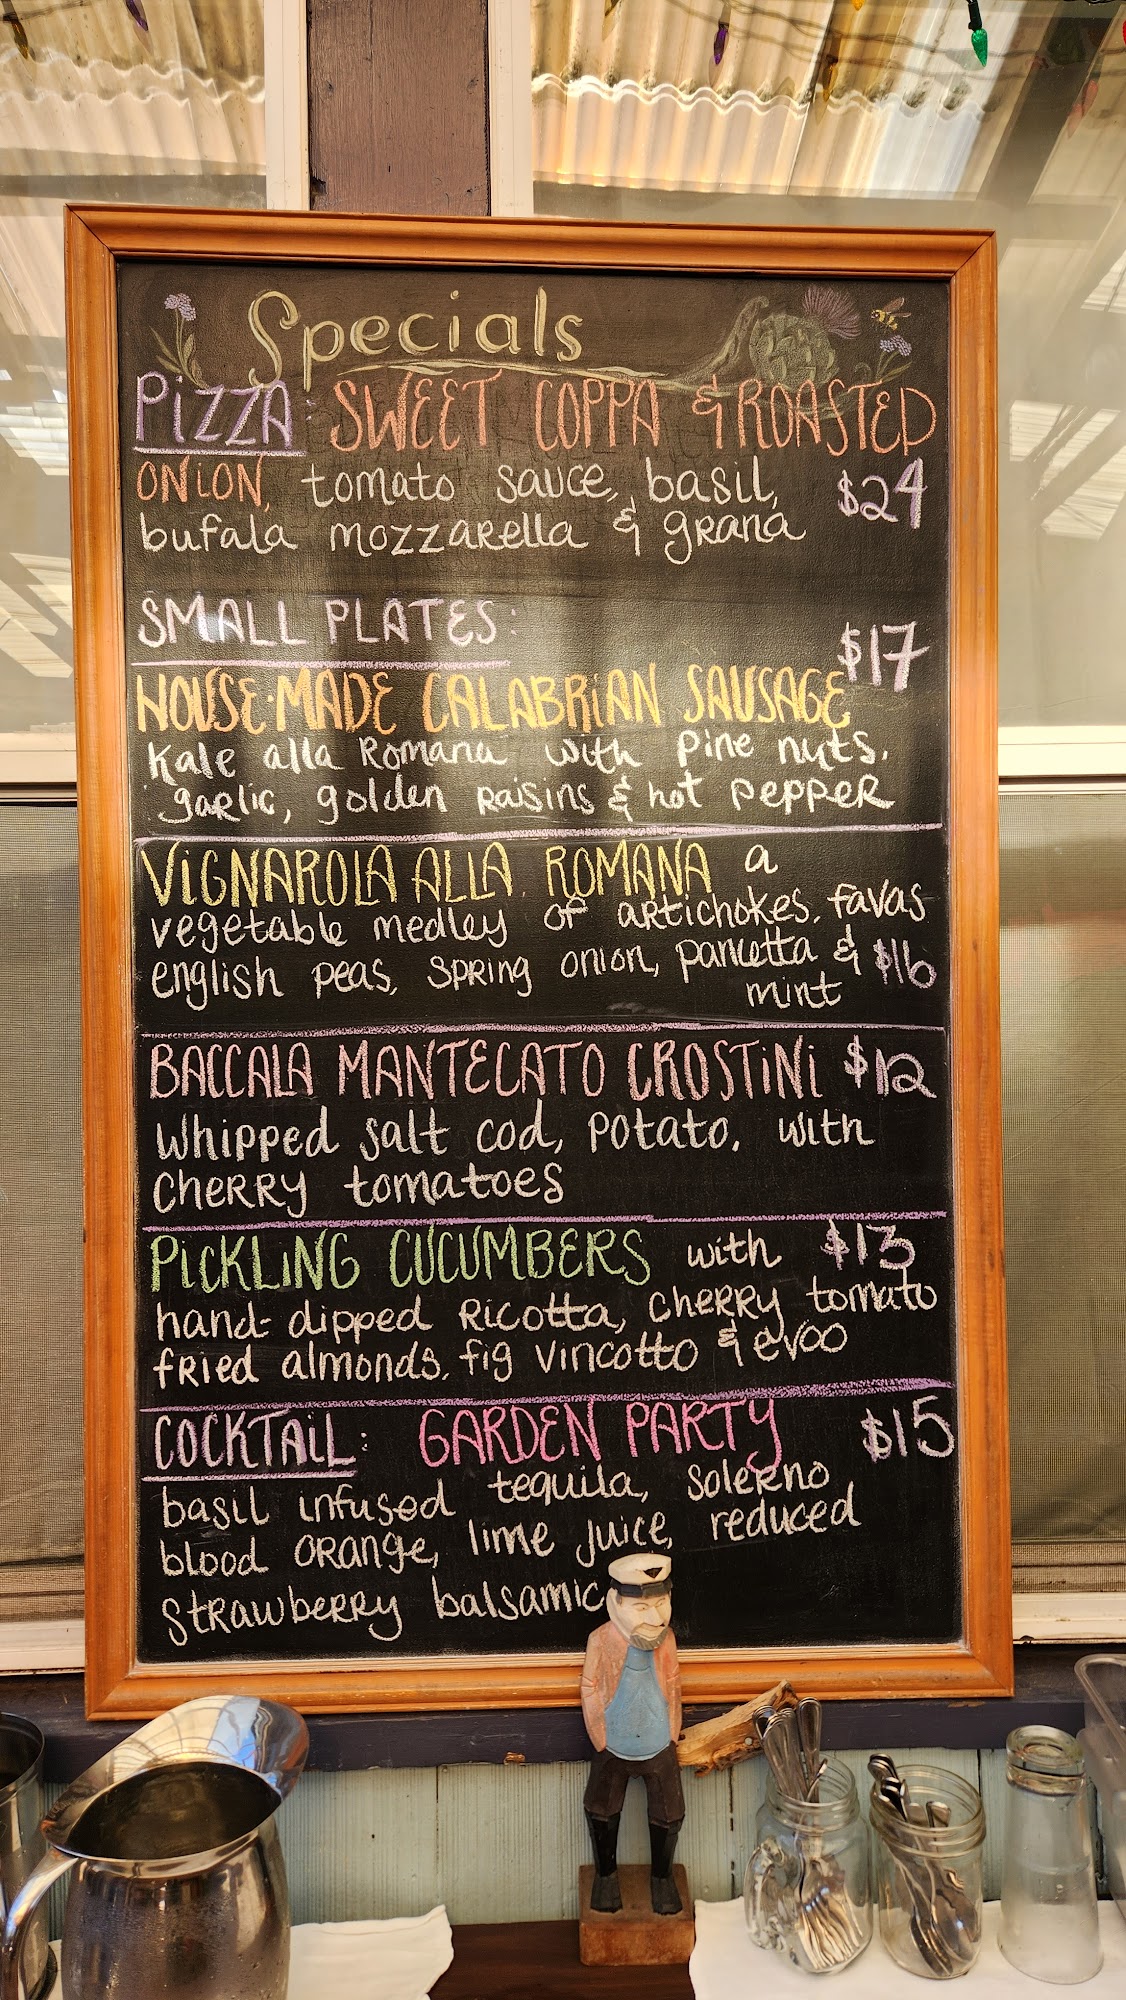 Specials
PIZZA: SWEET COPPA & ROASTED
ONION, tomato sauce, basil, $24
bufala mozzarella & grana
SMALL PLATES:
$17
HOUSE-MADE CALABRIAN SAUSAGE
Kale alla Romana with pine nuts,
garlic, golden raisins & hot pepper
VIGNAROLA ALLA ROMANA a
vegetable medley of artichokes, favas
english peas, spring onion, pancetta & $16
mint
BACCALA MANTECATO CROSTINI $12
whipped salt cod, potato, with
cherry tomatoes
PICKLING CUCUMBERS with $13
hand-dipped ricotta, cherry tomato
fried almonds, fig vincotto & evoo
COCKTAIL: GARDEN PARTY $15
basil infused tequila, solerno
blood orange, lime juice, reduced
strawberry balsamic